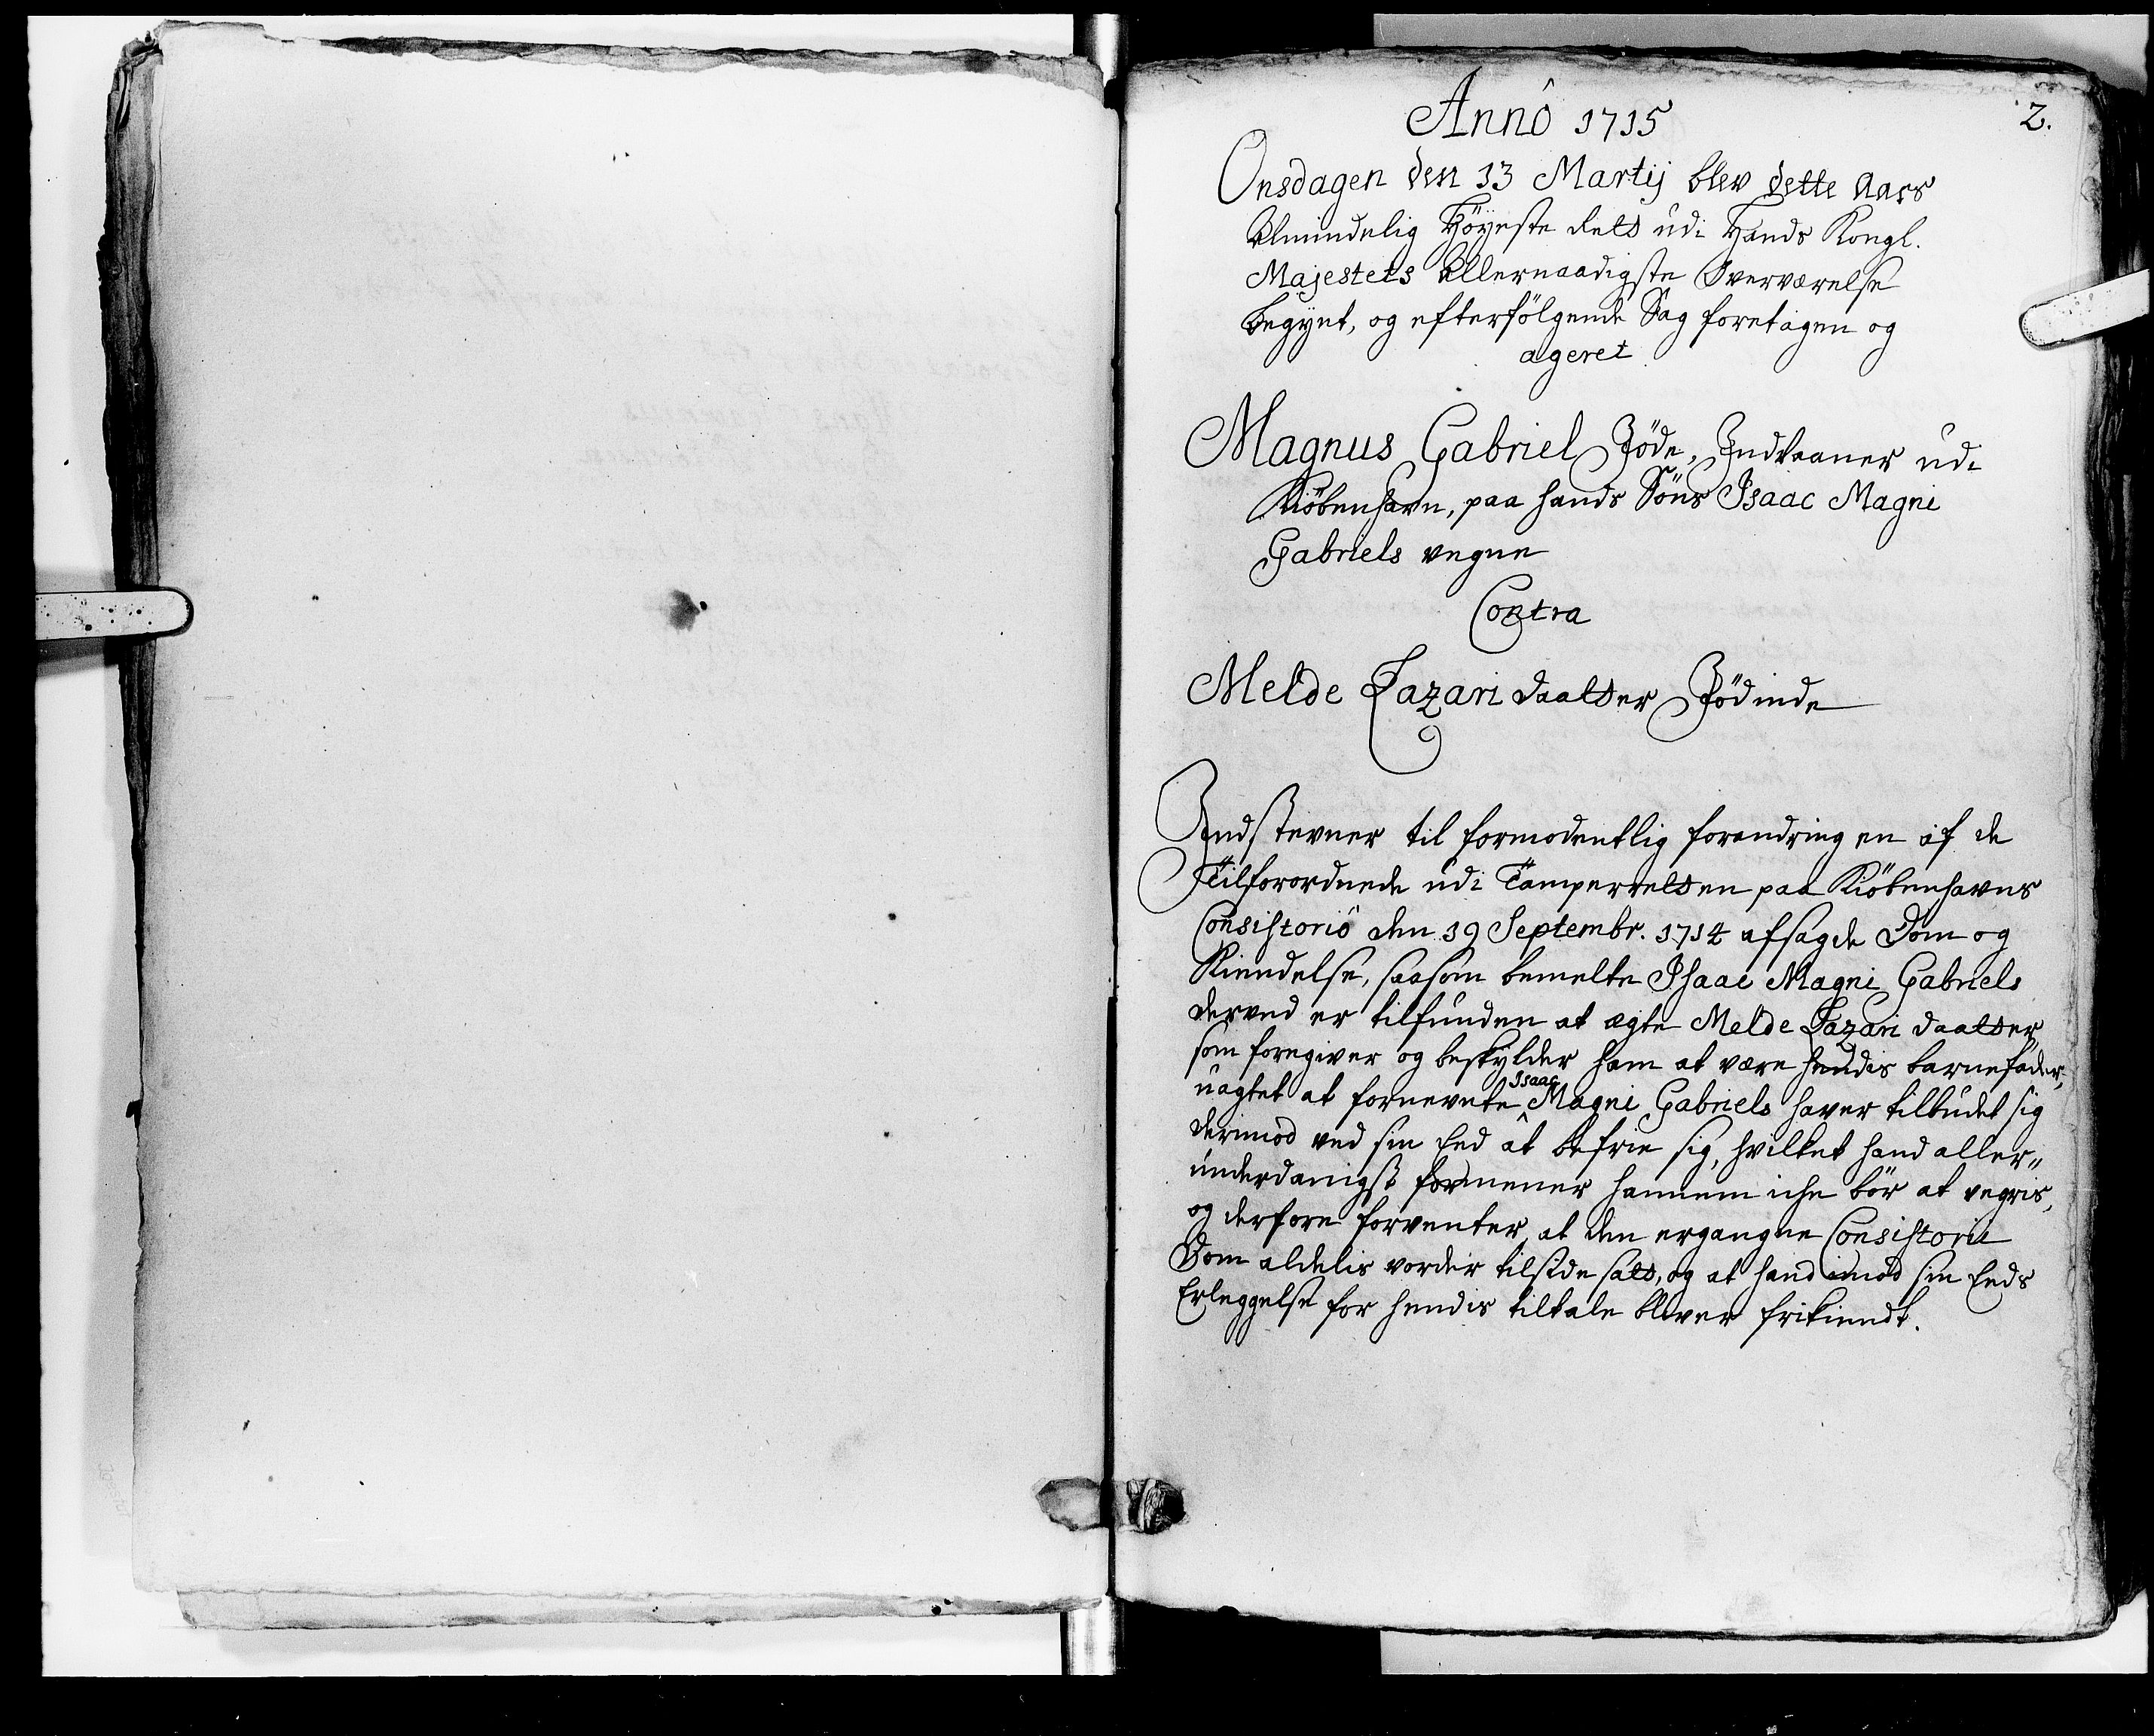 Annô 1715
2.
Onsdagen den 13 Martij blev dette Aars
Almindelig Höyeste Rets udi Hands Kongl.
Majestets Allernaadigste Overværelse
begynt, og efterfölgende Sag foretagen og
ageret
Magnus Gabriel Jöde, Indvaaner udi
Kiöbenhavn, paa hands Söns Isaac Magni
Gabriels vegne
Contra
Melde Lazari daatter Jödinde
Indstevner til formodentlig forandring en af de
Tilforordnede udi Tamperretten paa Kiöbenhavns
Consistoriô den 19 Septembr. 1714 afsagde Dom og
Kiendelse, saasom bemelte Isaac Magni Gabriels
derved er tilfunden at ægte Melde Lazari daatter,
som foregiver og beskylder ham at være hendis barnefader,
uagtet at fornevnte Isaac Magni Gabriels haver tilbudet sig
derimod ved sin Eed at befrie sig, hvilket hand aller„
underdanigst formener hannem iche bör at vegris,
og derfore forventer, at den ergangne Consistorii
Dom aldelis vorder tilside satt, og at hand imod sin Eeds
Erleggelse for hendis tiltale bliver frikiendt.